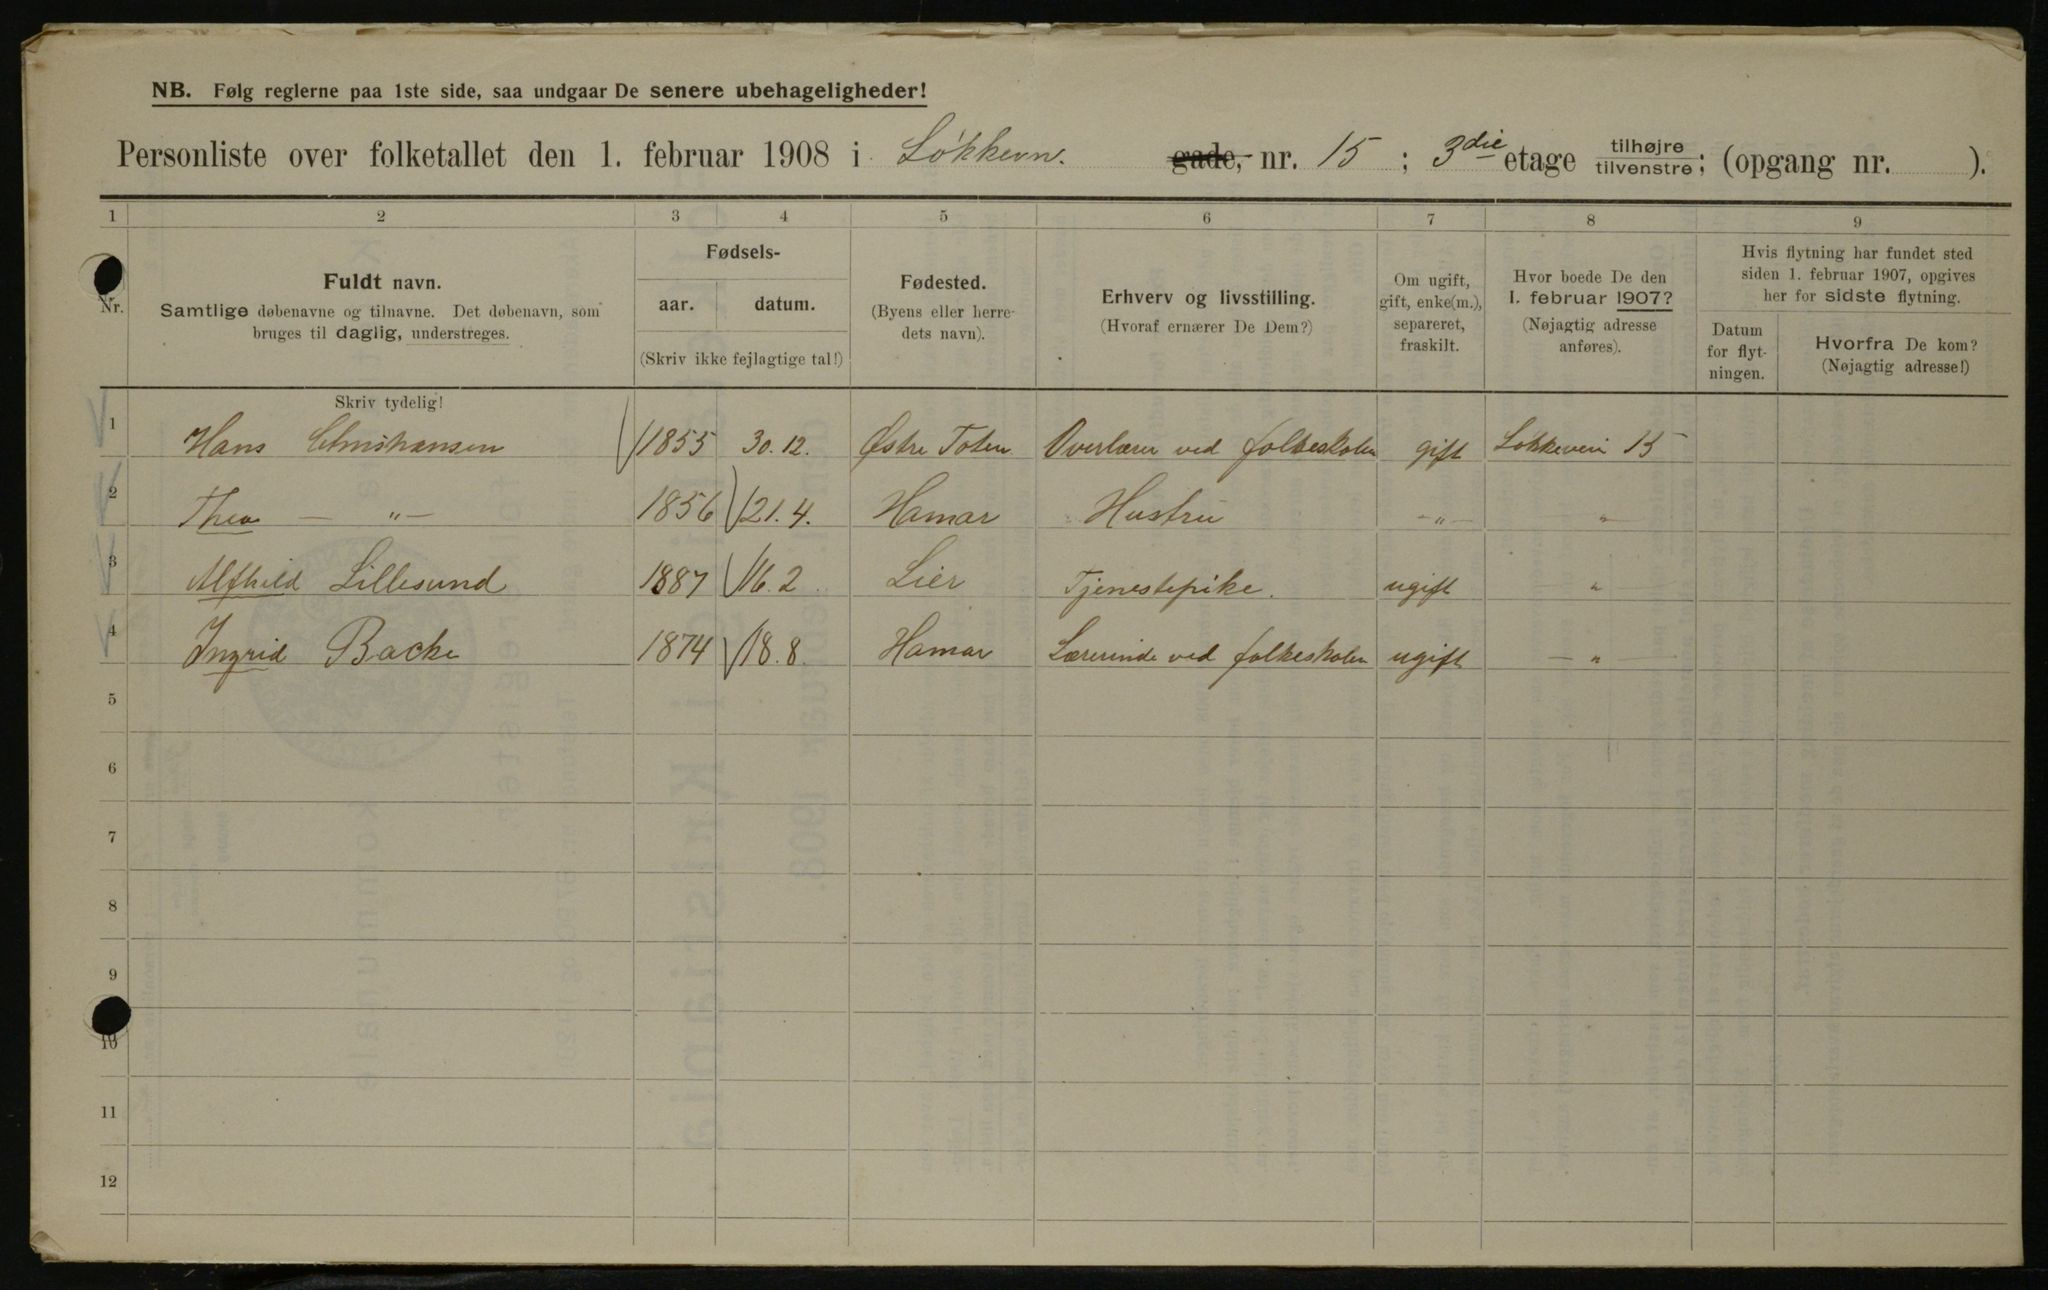 NB. Følg reglerne paa 1ste side, saa undgaar De senere ubehageligheder!
Personliste over folketallet den 1. februar 1908 i Løkkevn. gade, nr. 15 ; 3die etage tilhøjre tilvenstre; (opgang nr. ).
1 2 3 4 5 6 7 8 9
Nr.
Fuldt navn.
Samtlige døbenavne og tilnavne. Det døbenavn, som
bruges til daglig, understreges.
Skriv tydelig!
Fødsels-
aar. datum.
(Skriv ikke fejlagtige tal!)
Fødested.
(Byens eller herre-
dets navn).
Erhverv og livsstilling.
(Hvoraf ernærer De Dem?)
Om ugift,
gift, enke(m.),
separeret,
fraskilt.
Hvor boede De den
1. februar 1907?
(Nøjagtig adresse
anføres).
Hvis flytning har fundet sted
siden 1. februar 1907, opgives
her for sidste flytning.
Datum
for flyt-
ningen.
Hvorfra De kom?
(Nøjagtig adresse!)
1 Hans Christiansen 1855 30.12. Østre Toten Overlærer ved folkeskolen gift Løkkevein 15
2 Thea — „ — 1856 21.4. Hamar Hustru — „ — „
3 Alfhild Lillesund 1887 16.2 Lier Tjenestepike. ugift — „
4 Ingrid Backe 1874 18.8. Hamar Lærerinde ved folkeskolen ugift — „ —
5
6
7
8
9
10
11
12